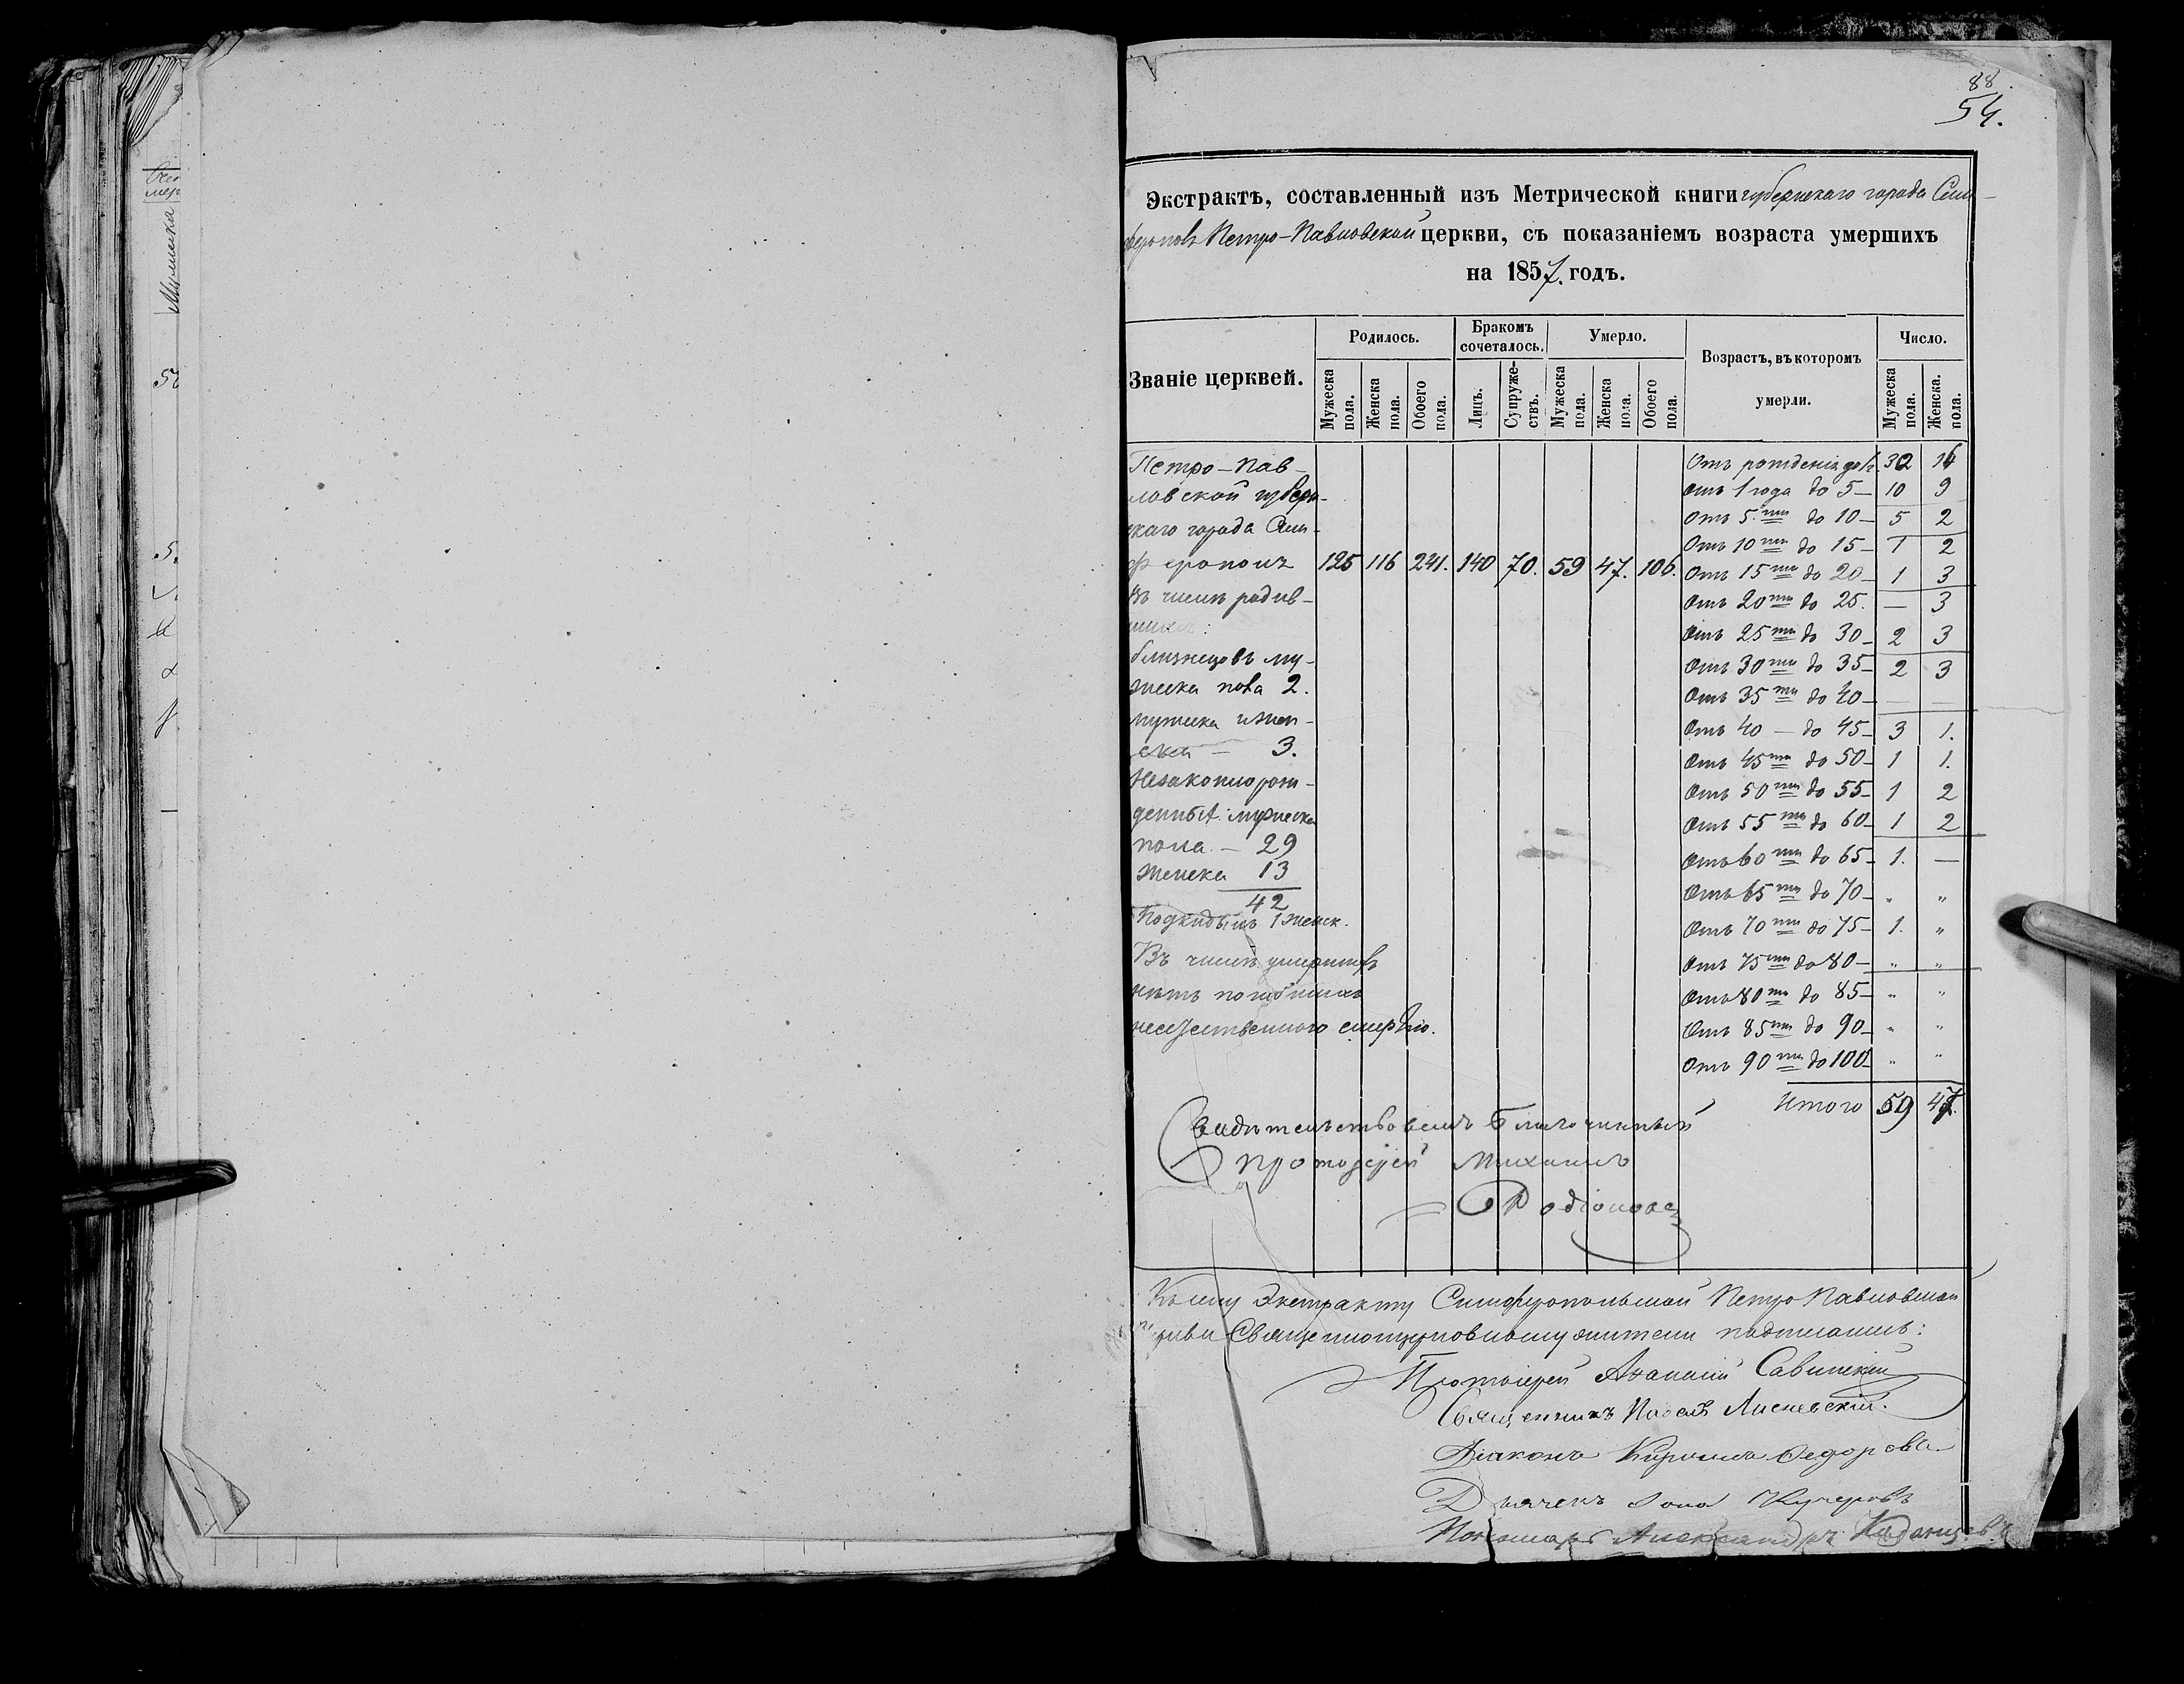 88.
54.
Экстрактъ, составленный изъ Метрической книги губернскаго города Сим-
ферополя Петро-Павловской церкви, съ показаніемъ возраста умершихъ
на 1857. годъ.
Званіе церквей.
Родилось.
Бракомъ сочеталось.
Умерло.
Возрастъ, въ которомъ умерли.
Число.
Мужеска пола.
Женска пола.
Обоего пола.
Лицъ.
Супруже-ствъ.
Мужеска пола.
Женска пола.
Обоего пола.
Мужеска пола.
Женска. пола.
Петро-Пав-
ловской губерн-
скаго города Сим-
ферополя 125 116 241. 140 70. 59 47. 106.
Въ числѣ родив-
шихся:
близнецовъ му-
жеска пола 2.
мужеска и жен-
ска — 3.
Незаконнорож-
денныхъ: мужеска
пола — 29
женска 13
42
Подкидышъ 1 женск.
Въ числѣ умершихъ
нѣтъ погибшихъ
неестественного смертію.
Отъ рожденія до 1г. 32 14
Отъ 1 года до 5 — 10 9
Отъ 5.ти до 10 — 5 2
Отъ 10ти до 15 — 1 2
Отъ 15ти до 20 — 1 3
Отъ 20ти до 25. — 3
Отъ 25ти до 30 — 2 3
Отъ 30ти до 35 — 2 3
Отъ 35ти до 40 — — —
Отъ 40 — до 45 — 3 1.
Отъ 45ти до 50 — 1 1.
Отъ 50ти до 55 — 1 2
Отъ 55ти до 60 — 1 2
Отъ 60ти до 65 — 1. —
Отъ 65ти до 70 — „ „
Отъ 70ти до 75 — 1. „
Отъ 75ти до 80 — „ „
Отъ 80ти до 85 — „ „
Отъ 85ти до 90 — „ „
Отъ 90ти до 100 — „ „
Итого 59 47.
Свидѣтельствовалъ Благочинный
Протоіерей Михаилъ
Родіоновъ
Къ сему Экстракту Симферопольской Петро Павловской
церкви Священноцерковнослужители подписались:
Протоіерей Ананій Савинскій
Священникъ Павелъ Лисневскій.
Діаконъ Кирилъ Федоровъ
Дьячекъ Іона Кучеровъ
Пономарь Александръ